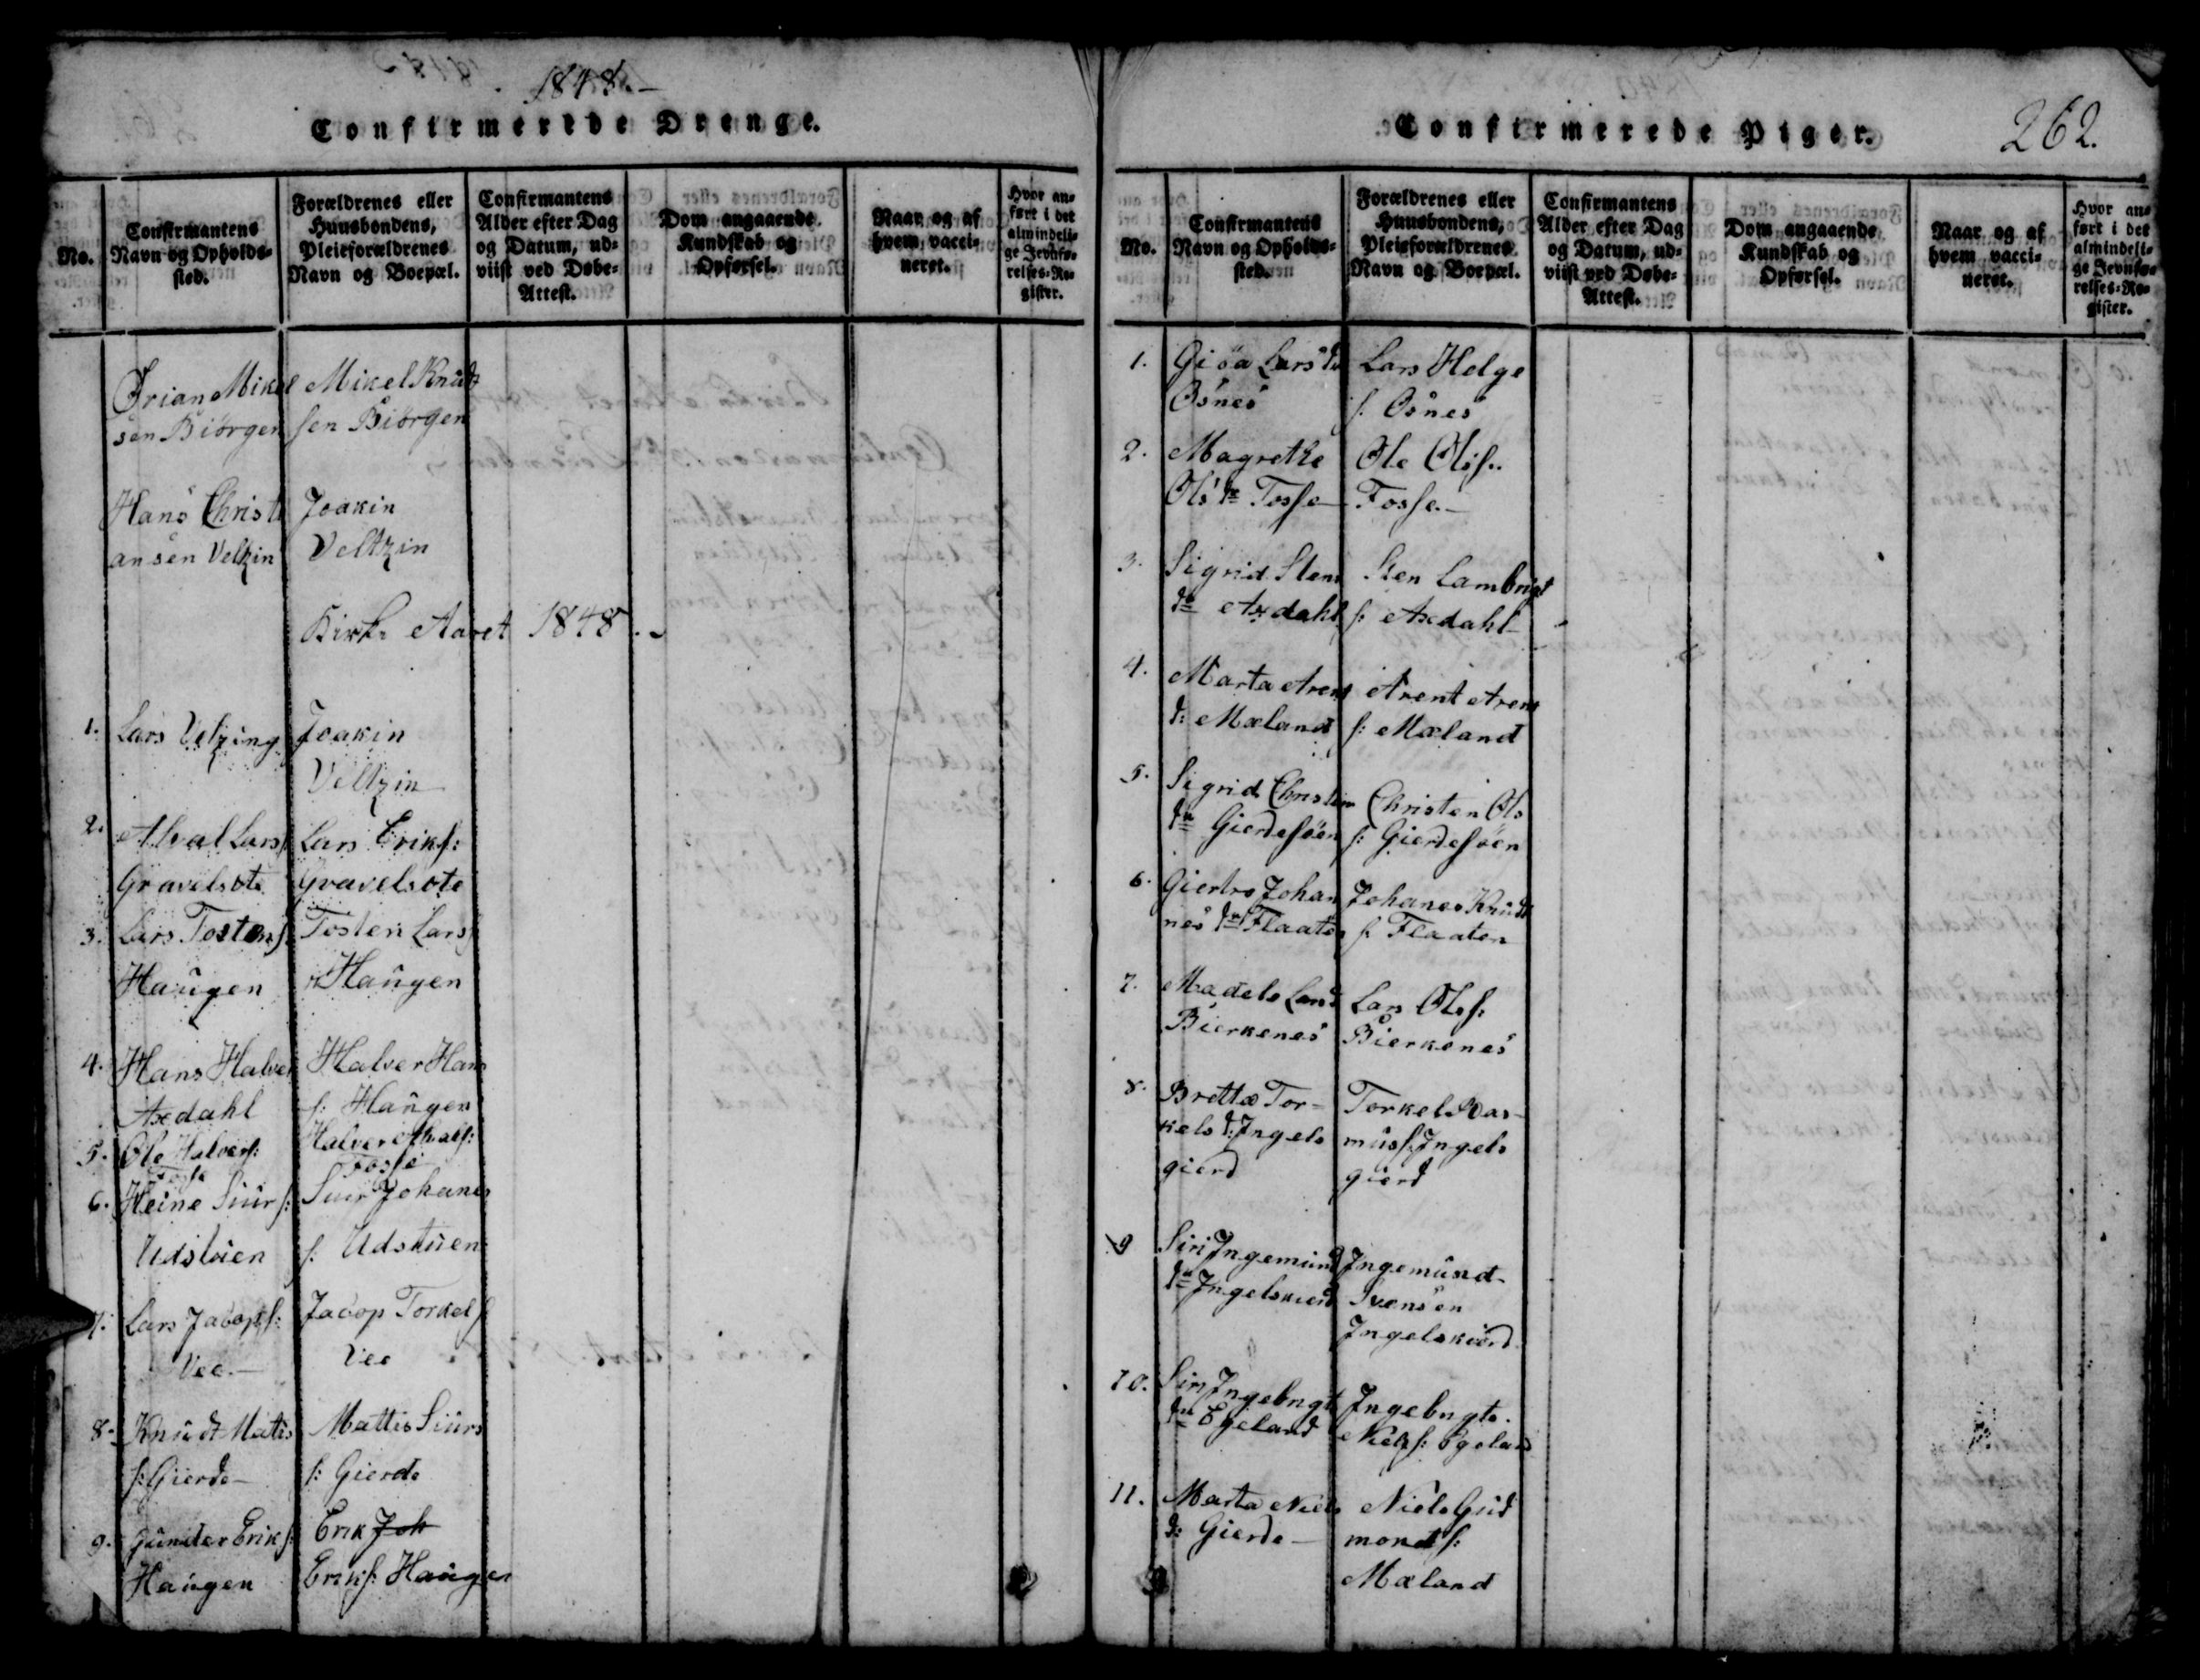 1848.-
Confirmerede Drenge.
No.
Confirmantens
Navn og Opholds-
sted.
Forældrenes eller
Huusbondens,
Pleieforældrenes
Navn og Boepæl.
Confirmantens
Alder efter Dag
og Datum, ud-
viist ved Døbe-
Attest.
Dom angaaende
Kundskab og
Opførsel.
Naar og af
hvem vacci-
neret.
Hvor an-
ført i det
almindeli-
ge Jevnfø-
relses-Re-
gister.
Ørian Mikel
sen Biörgen
Mikel Knudt
sen Biörgen
Hans Christi
ansen Veltzin
Joakin
Veltzin
Kirke Aaret 1848.
1. Lars Veltzing
Joakin
Veltzin
2. Alval Lars f:
Gravelsøte
Lars Erikf:
Gravelsøte
3. Lars Tostenf:
Haugen
Tosten Larsf
Haugen
4. Hans Halver
Axdahl
Halver Hans
f: Haugen
5. Ole Halverf:
Fosse
Halver Alvalf:
Fosse
6. Heine Siurf:
Udstuen
Siur Johanes
f: Udstuen
7. Lars Jacopf:
Vee.-
Jacop Torkelf
Vee
8. Knudt Matis
f: Gierde-
Mattis Siurs
f: Gierde
9. Gunder Erikf:
Haugen
Erik Joh
Erikf: Haugen
Confirmerede Piger.
262.
No.
Confirmantens
Navn og Opholds-
sted.
Forældrenes eller
Huusbondens,
Pleieforældrenes
Navn og Boepæl.
Confirmantens
Alder efter Dag
og Datum, ud-
viist ved Døbe-
Attest.
Dom angaaende
Kundskab og
Opførsel.
Naar og af
hvem vacci-
neret.
Hvor an-
ført i det
almindeli-
ge Jevnfø-
relses-Re-
gister.
1. Giöa Lars dr
Osnes
Lars Helge
f: Osnes
2. Magrethe
Ols dr Fosse-
Ole Olsf:
Fosse.-
3. Sigrid Stens
dr Axdahl
Sten Lambrigt
f: Axdahl-
4. Marta Arent
d: Mæland
Arent Arent
f: Mæland
5. Sigrid Christen
dr Gierdesöen
Christen Ols
f: Gierdesöen
6. Giertro Johan
nes dr Flaaten
Johanes Knudt
f: Flaaten
7. Madele Larsd
Bierkenes
Lars Olsf:
Bierkenes
8. Brettæ Tor-
kels d: Ingels
gierd
Torkel Ras-
musf: Ingels
gierd
9 Siri Ingemund
dr Ingelskierd
Ingemund
Svensen
Ingelskierd.
10. Siri Ingebrigt
dr Egeland
Ingebrigte.
Nielsf: Egeland
11. Marta Niels
d: Gierde-
Niels Gud
mondf:
Mæland